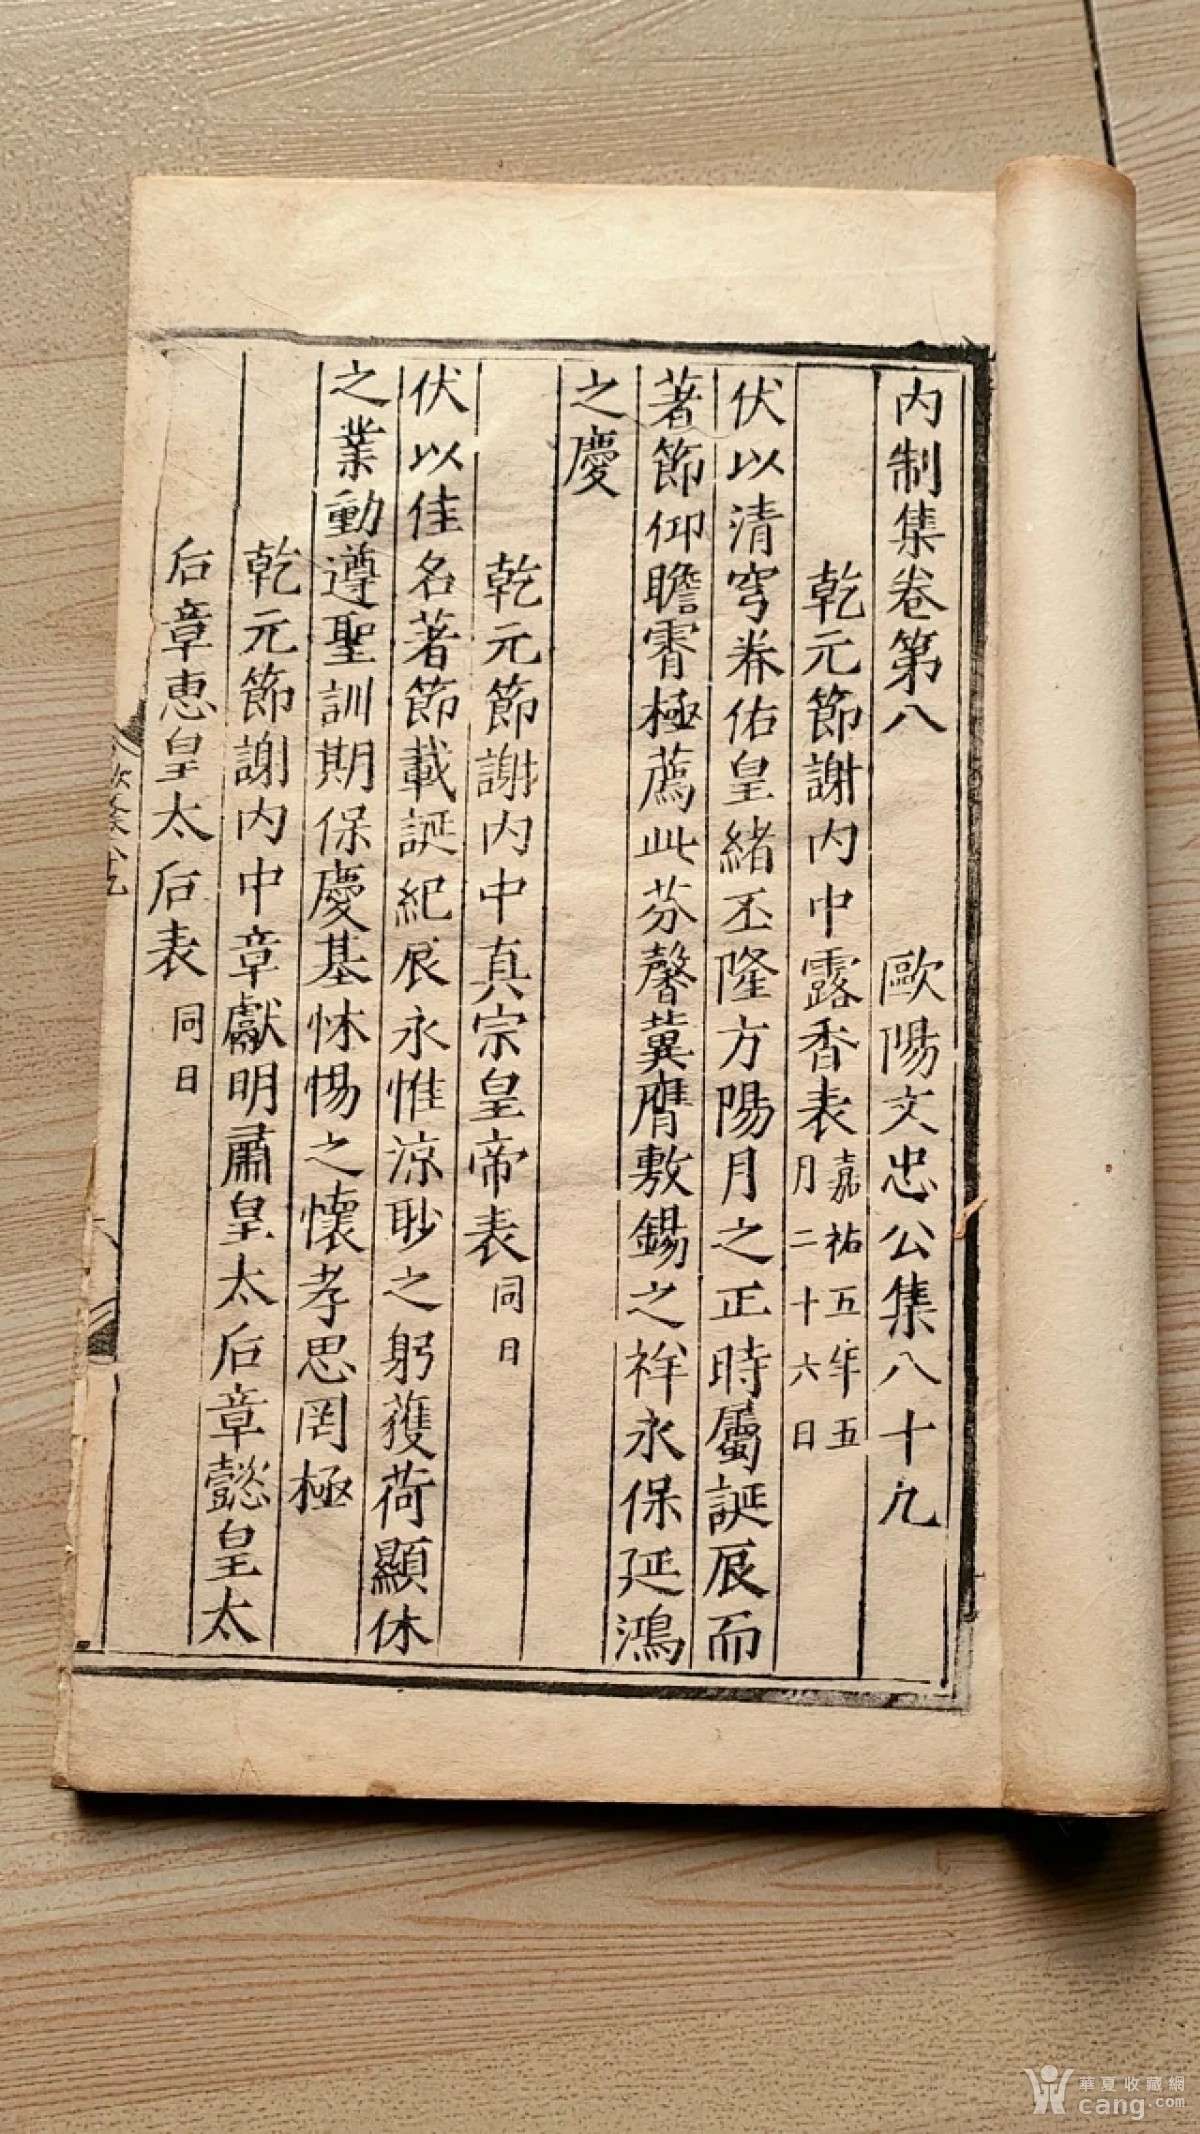 内制集卷第八 歐陽文忠公集八十九
乾元節謝内中露香表嘉祐五年五
月二十六日
伏以清穹眷佑皇緒丕隆方陽月之正時屬誕辰而
著節仰瞻霄極薦此芬馨冀膺敷錫之祥永保延鴻
之慶
乾元節謝内中真宗皇帝表同日
伏以佳名著節載誕紀辰永惟涼眇之躬獲荷顯休
之業動遵聖訓期保慶基怵惕之懷孝思罔極
乾元節謝内中章獻明肅皇太后章懿皇太
后章惠皇太后表同日
華夏收藏網
cang.com